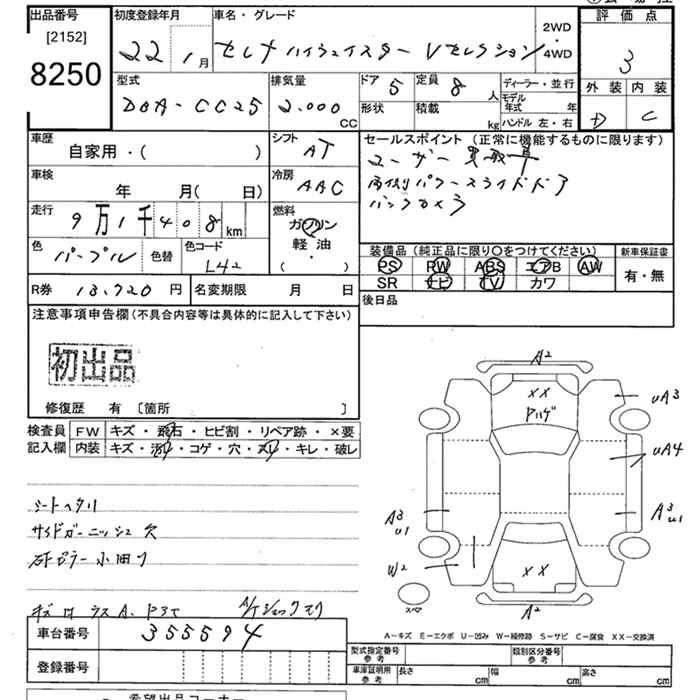 出品番号 初度登録年月 車名・グレード 評価点
[2152] 22年 1月 セレナ ハイウェイスター Vセレクション 2WD・4WD 3
8250
型式 排気量 ドア 5 定員 8人 ディーラー・並行 外装 内装
DBA-CC25 2.000CC 形状 積載 kg モデル年式 年 ハンドル 左・右 D C
車歴 シフト セールスポイント(正常に機能するものに限ります)
自家用・( ) AT ユーザー買取車
車検 冷房 両側パワースライドドア
年 月( 日) AAC バックカメラ
走行 燃料
9万1千408km ガソリン
色 パープル 色替 色コード L42 軽油・( )
装備品(純正品に限り○をつけてください) 新車保証書
PS PW ABS エアB AW 有・無
SR ナビ TV カワ
R券 13,720円 名変期限 月 日 後日品
注意事項申告欄(不具合内容等は具体的に記入して下さい)
初出品
修復歴 有〔箇所 〕
検査員 FW キズ・飛石・ヒビ割・リペア跡・×要
記入欄 内装 キズ・コゲ・穴・キレ・破レ
シートヘタリ
サイドガーニッシュ欠
A2
XX
uA3
uA4
A3 u1
A3 u1
W2
XX
A2
スペア
A-キズ E-エクボ U-凹み W-補修跡 S-サビ C-腐食 XX-交換済
車台番号 355594
登録番号
型式指定番号 参考 類別区分番号 参考
車庫証明用 参考 長さ cm 幅 cm 高さ cm
希望出品コーナー